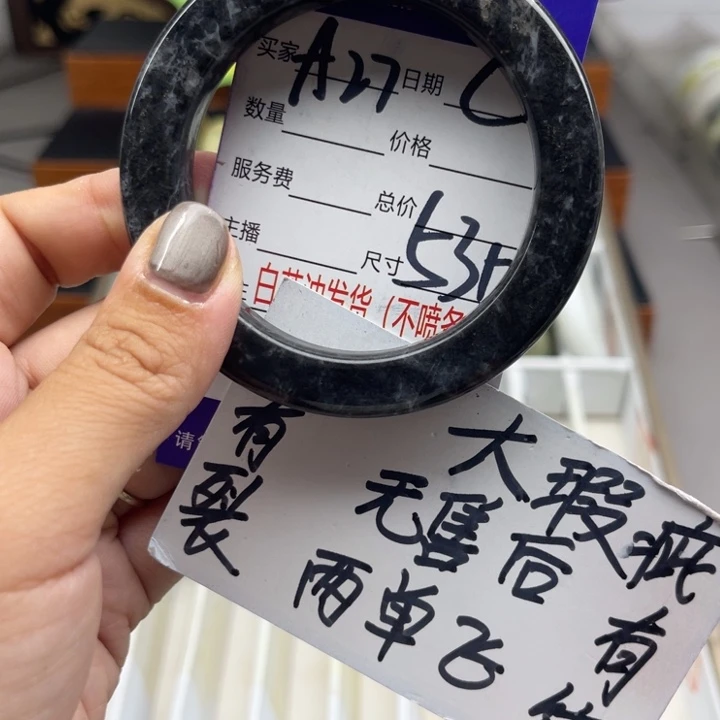 买家 A27 日期
数量 价格
服务费 总价
主播 尺寸 53
发货（不喷
请
有 大瑕疵
裂 无售后 有
两单飞